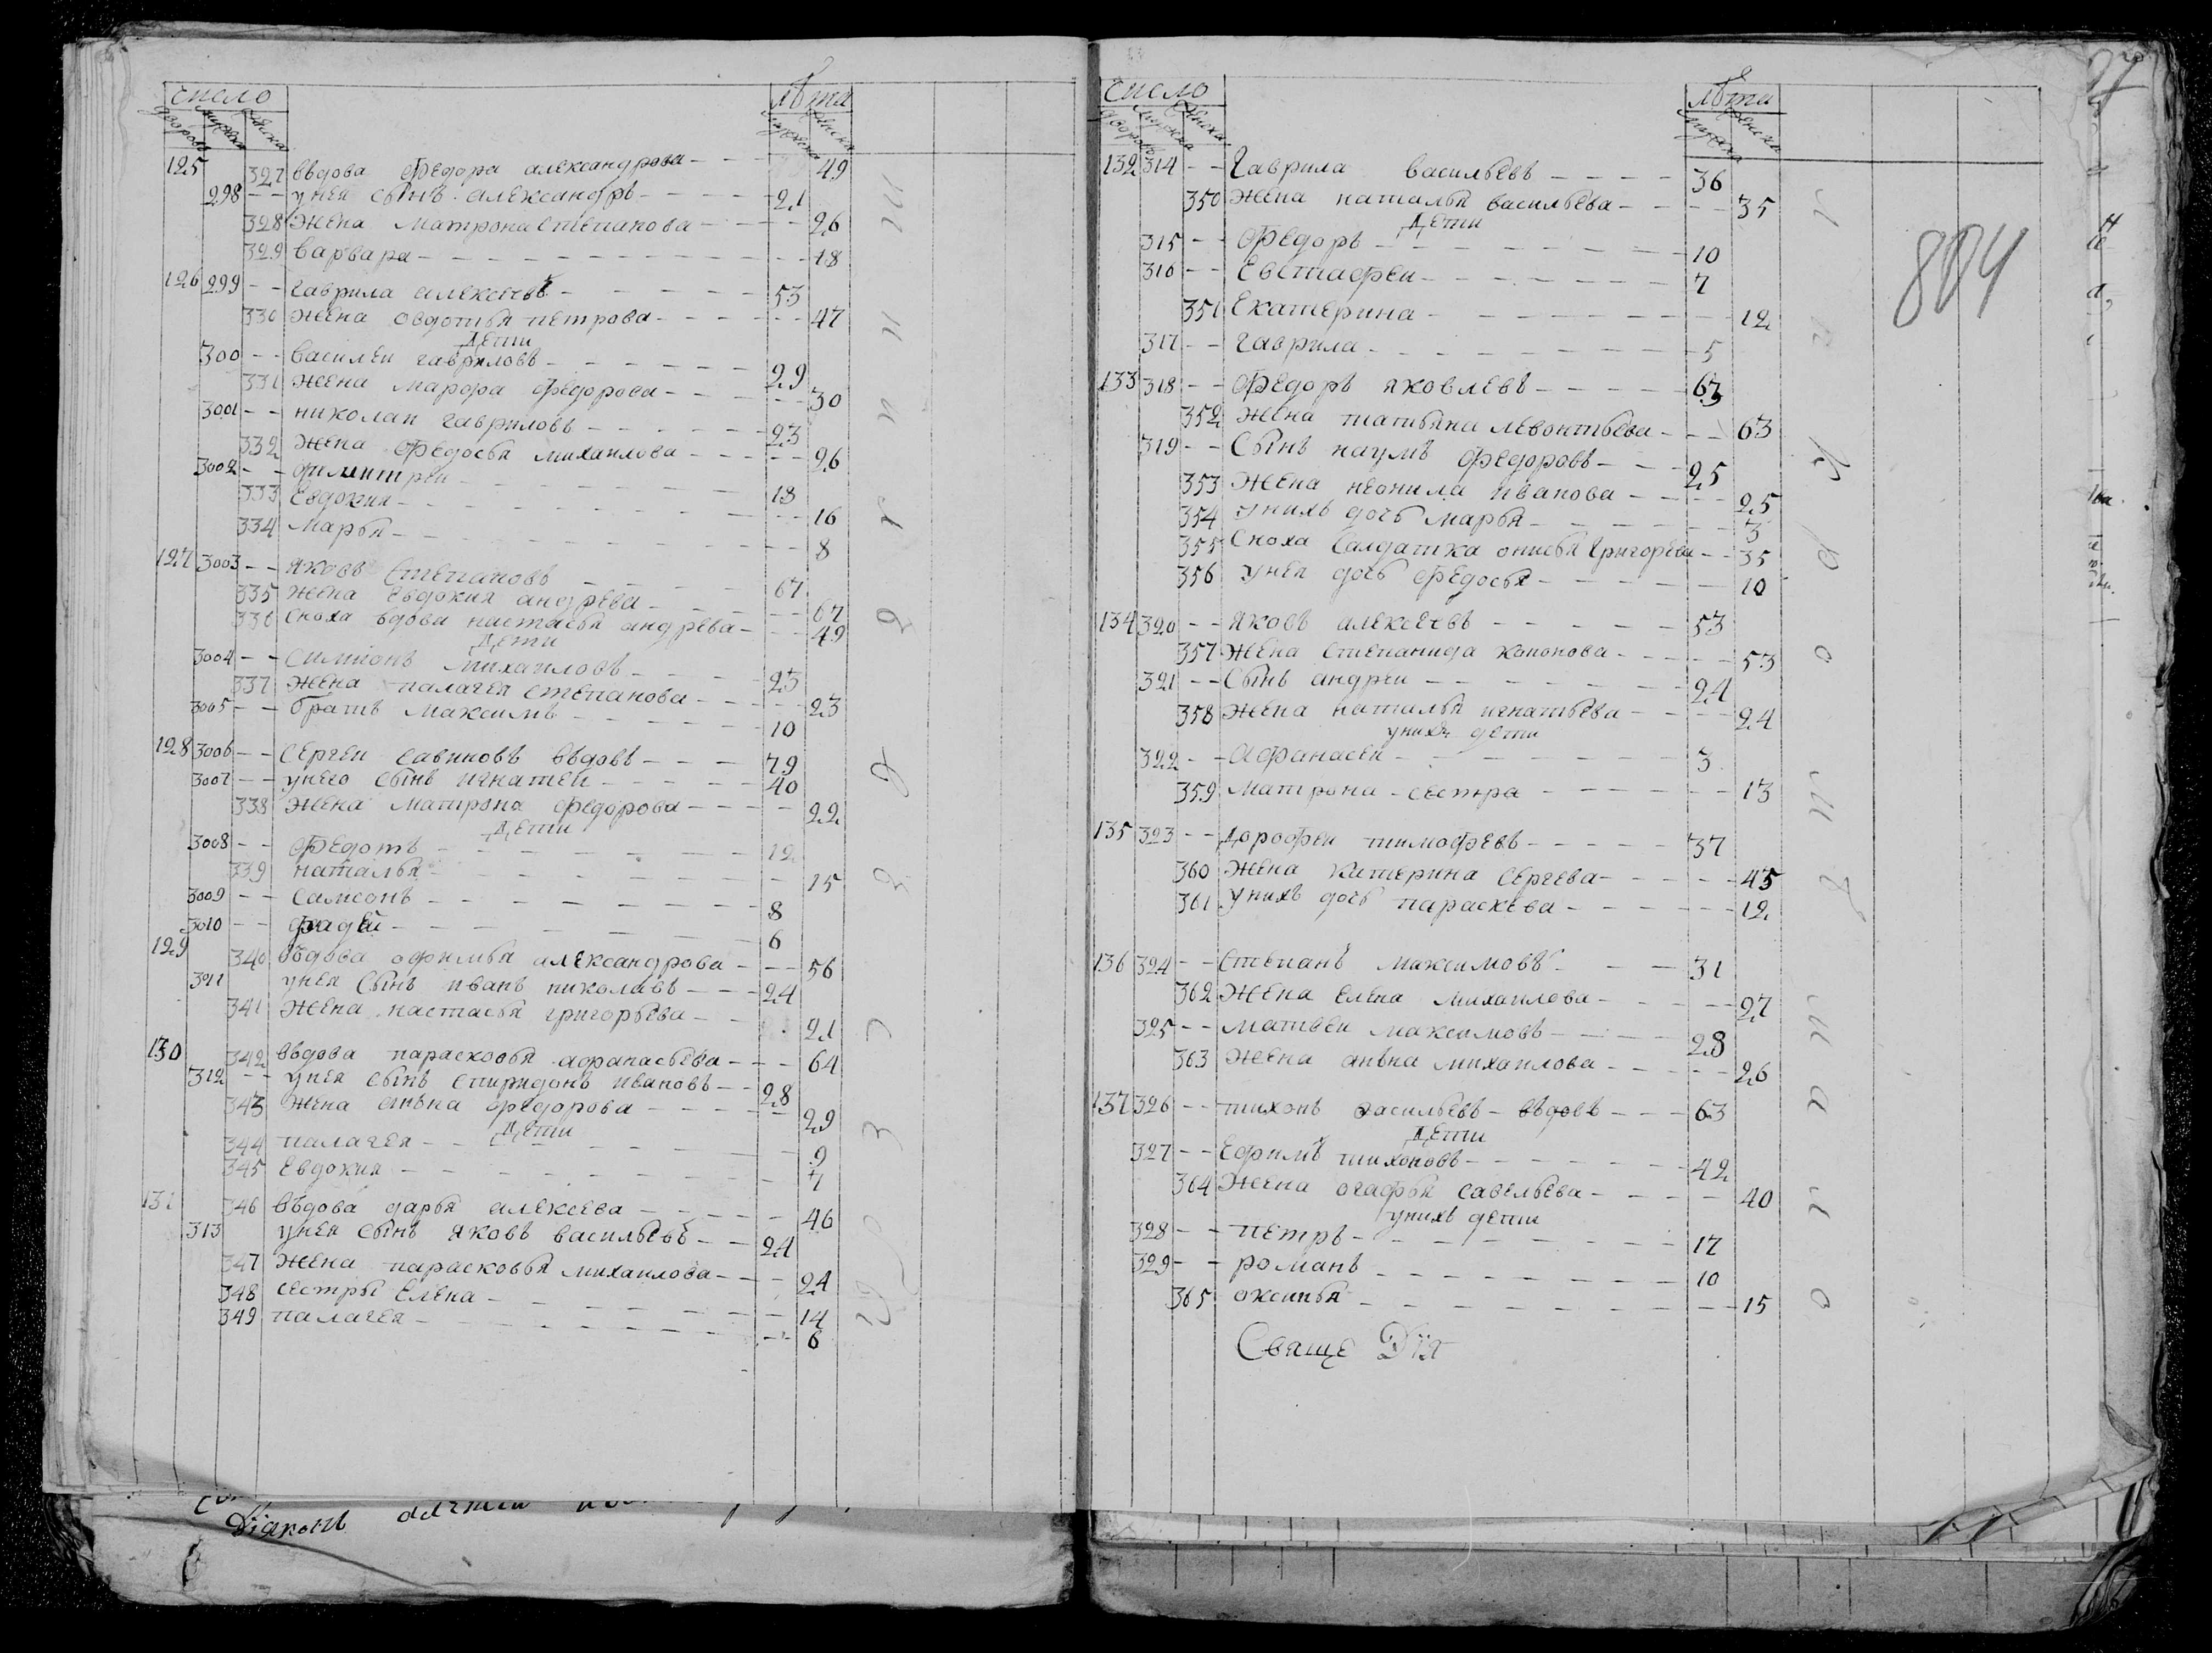 число
лѣта
дворовъ мужска женска
мужска женска
125 327 вдова федора александрова 49
298 у нея сынъ александръ 21
328 жена матрона степанова 26
329 варвара 18
126 299 гаврила алексеевъ 53
330 жена овдотья петрова 47
дети
300 василеи гавриловъ 29
331 жена марфа федорова 30
3001 николаи гавриловъ 23
332 жена федосья михаилова 26
3002 димитреи 18
333 евдокия 16
334 марья 8
127 3003 яковъ степановъ 67
335 жена евдокия андрева 67
336 сноха вдова настасья андрева 49
дети
3004 симионъ михаиловъ 23
337 жена палагея степанова 23
3005 братъ максимъ 10
128 3006 сергеи савиновъ вдовъ 79
3007 у него сынъ игнатеи 40
338 жена матрона федорова 22
дети
3008 федотъ 12
339 наталья 15
3009 самсонъ 8
3010 фадеи 6
129 340 вдова офимья александрова 56
3011 у нея сынъ иванъ николавъ 24
341 жена настасья григорьева 21
130 342 вдова парасковья афанасьева 64
312 у нея сынъ спиридонъ ивановъ 28
343 жена анъна федорова 29
дети
344 палагея 9
345 евдокия 7
131 346 вдова дарья алексева 46
313 у нея сынъ яковъ васильевъ 24
347 жена парасковья михаилова 24
348 сестры елена 14
349 палагея 6
Діяконъ
число
лѣта
дворовъ мужска женска
мужска женска
132 314 гаврила васильевъ 36
350 жена наталья васильева 35
дети
315 федоръ 10
316 евстафеи 7
351 екатерина 12
317 гаврила 5
133 318 федоръ яковлевъ 63
352 жена татьяна левонтьева 63
319 сынъ наумъ федоровъ 25
353 жена неонила иванова 25
354 у нихъ дочь марья 3
355 сноха салдатка онисья григорева 35
356 у нея дочь федосья 10
134 320 яковъ алексеевъ 53
357 жена степанида кононова 53
321 сынъ андреи 24
358 жена наталья игнатьева 24
у нихъ дети
322 афанасеи 3
359 матрона сестра 13
135 323 дорофеи тимофеевъ 37
360 жена катерина сергева 45
361 у нихъ дочь параскева 12
136 324 степанъ максимовъ 31
362 жена елена михаилова 27
325 матвеи максимовъ 28
363 жена анъна михаилова 26
137 326 тихонъ васильевъ вдовъ 63
дети
327 ефимъ тихоновъ 42
364 жена огафья савельева 40
у нихъ дети
328 петръ 17
329 романъ 10
365 оксинья 15
Свяще Дїя